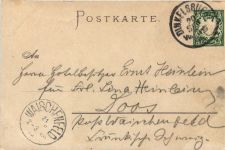 POSTKARTE.
DINKELSBÜHL
An
Herrn Goldbesitzer Ernst Heinlein
für Frl. Lina Heinlein
Doos
Post Waischenfeld
Fränkische Schweiz
WAISCHENFELD